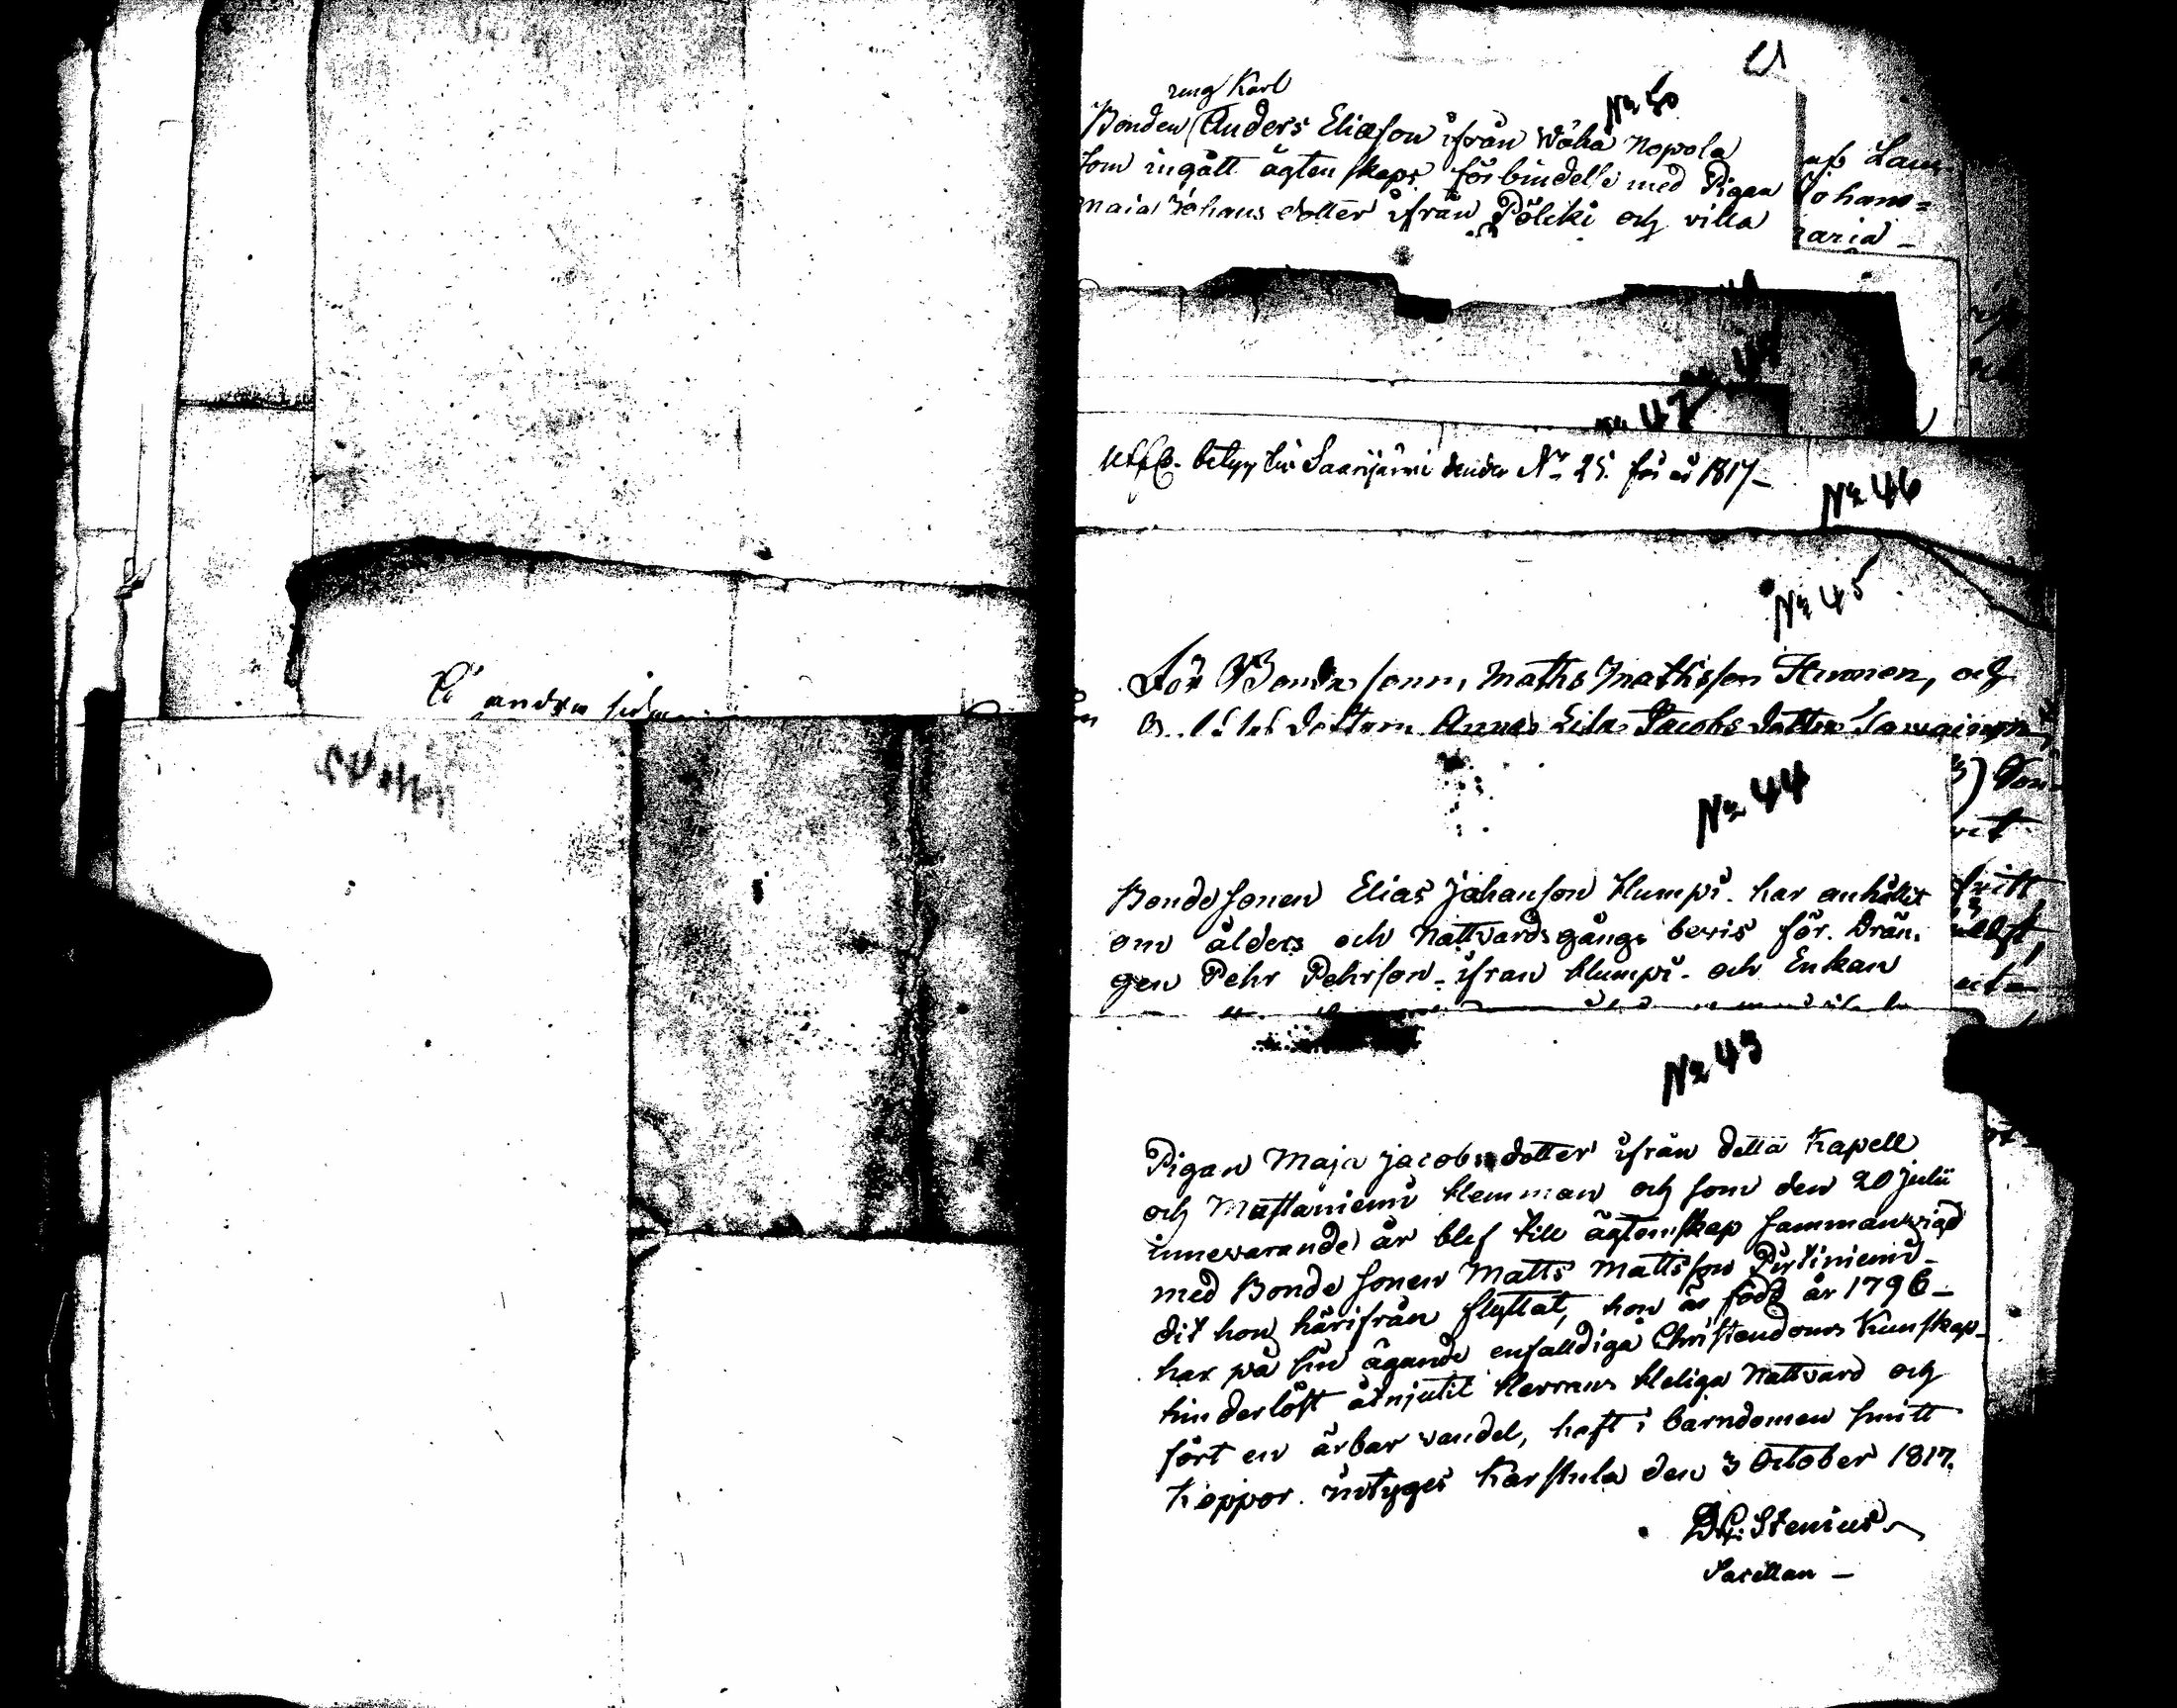 På andra sidan
ung Karl
No 50
Bonden Anders Eliæson ifrån Wäha Nopola
som ingått ägtenskaps förbindelse med Pigan
Maia Johans dotter ifrån Pölcki och villa
Johans=
maria
No 47
betyg til Saarijärvi under No 25. för år 1817
No 46
No 45
För Bonde sonen, Maths Mathsson Humen, och
dottern Anna Lisa Jacobs dotter
No 44
Bonde sonen Elias Johanson Humpi. har anhållit
om ålders och Nattvards gångs bevis för. Drän-
gen Pehr Pehrson - ifran Humpi - och Enkan
No 43
Pigan Maja Jacobsdotter ifrån detta Kapell
och Mustaniemi Hemman och som den 20 Julii
innevarande år blef till ägtenskap sammanvigd
med Bonde sonen Matts Mattsson Pirtiniemi -
dit hon härifrån flyttat, hon är född år 1796 -
har på sin ägande enfalldiga Christendoms Kunskap -
hinderlöst åtnjutit Herrans Heliga Nattvard och
fört en ärbar vandel, haft i barndomen smitt
Koppor. intyges Karstula den 3 October 1817.
Stenius
Sacellan -